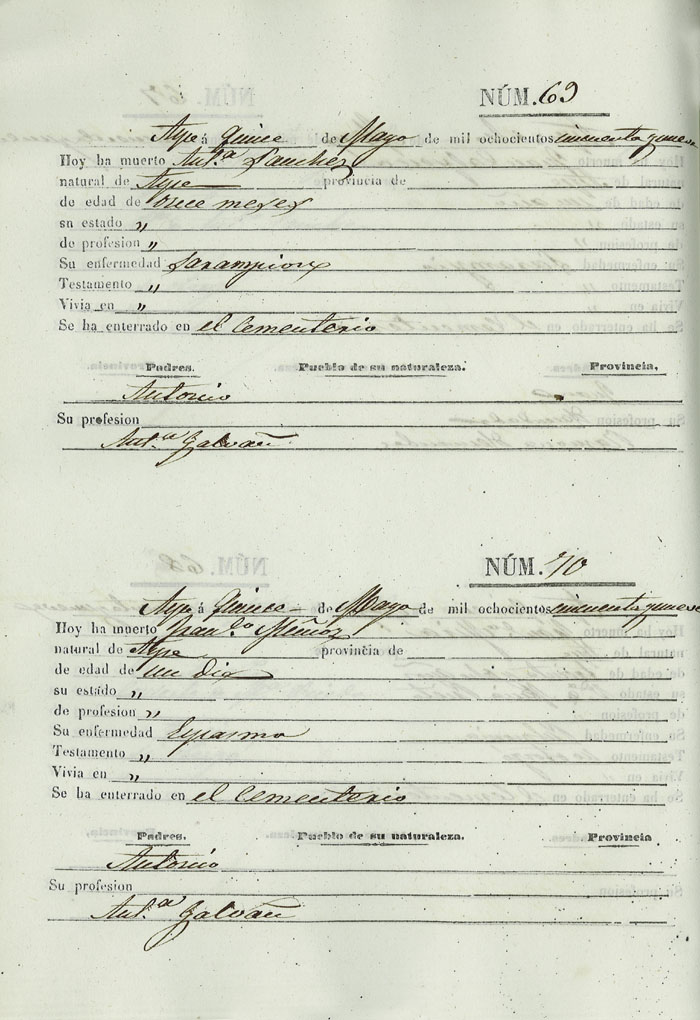 NÚM. 69
Aype á Quince de Mayo de mil ochocientos cincuenta y nueve
Hoy ha muerto Ant.ª Sanchez
natural de Aype provincia de
de edad de once meses
sn estado „
de profesion „
Su enfermedad Sarampion
Testamento „
Vivia en „
Se ha enterrado en el Cementerio
Padres. Pueblo de su naturaleza. Provincia.
Antonio
Su profesion
Ant.ª Galvañ
NÚM. 70
Aype á Quince de Mayo de mil ochocientos cincuenta y nueve
Hoy ha muerto Fran.co Muñoz
natural de Aype provincia de
de edad de un dia
su estado „
de profesion „
Su enfermedad Espasmo
Testamento „
Vivia en „
Se ha enterrado en el Cementerio
Padres. Pueblo de su naturaleza. Provincia
Antonio
Su profesion
Ant.ª Galvañ